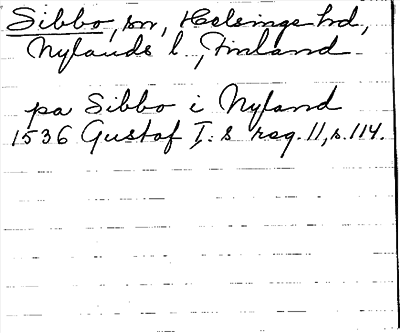 Sibbo, sn, Helsinge hd,
Nylands l., Finland
pa Sibbo i Nyland
1536 Gustaf I:s reg. 11, s. 114.